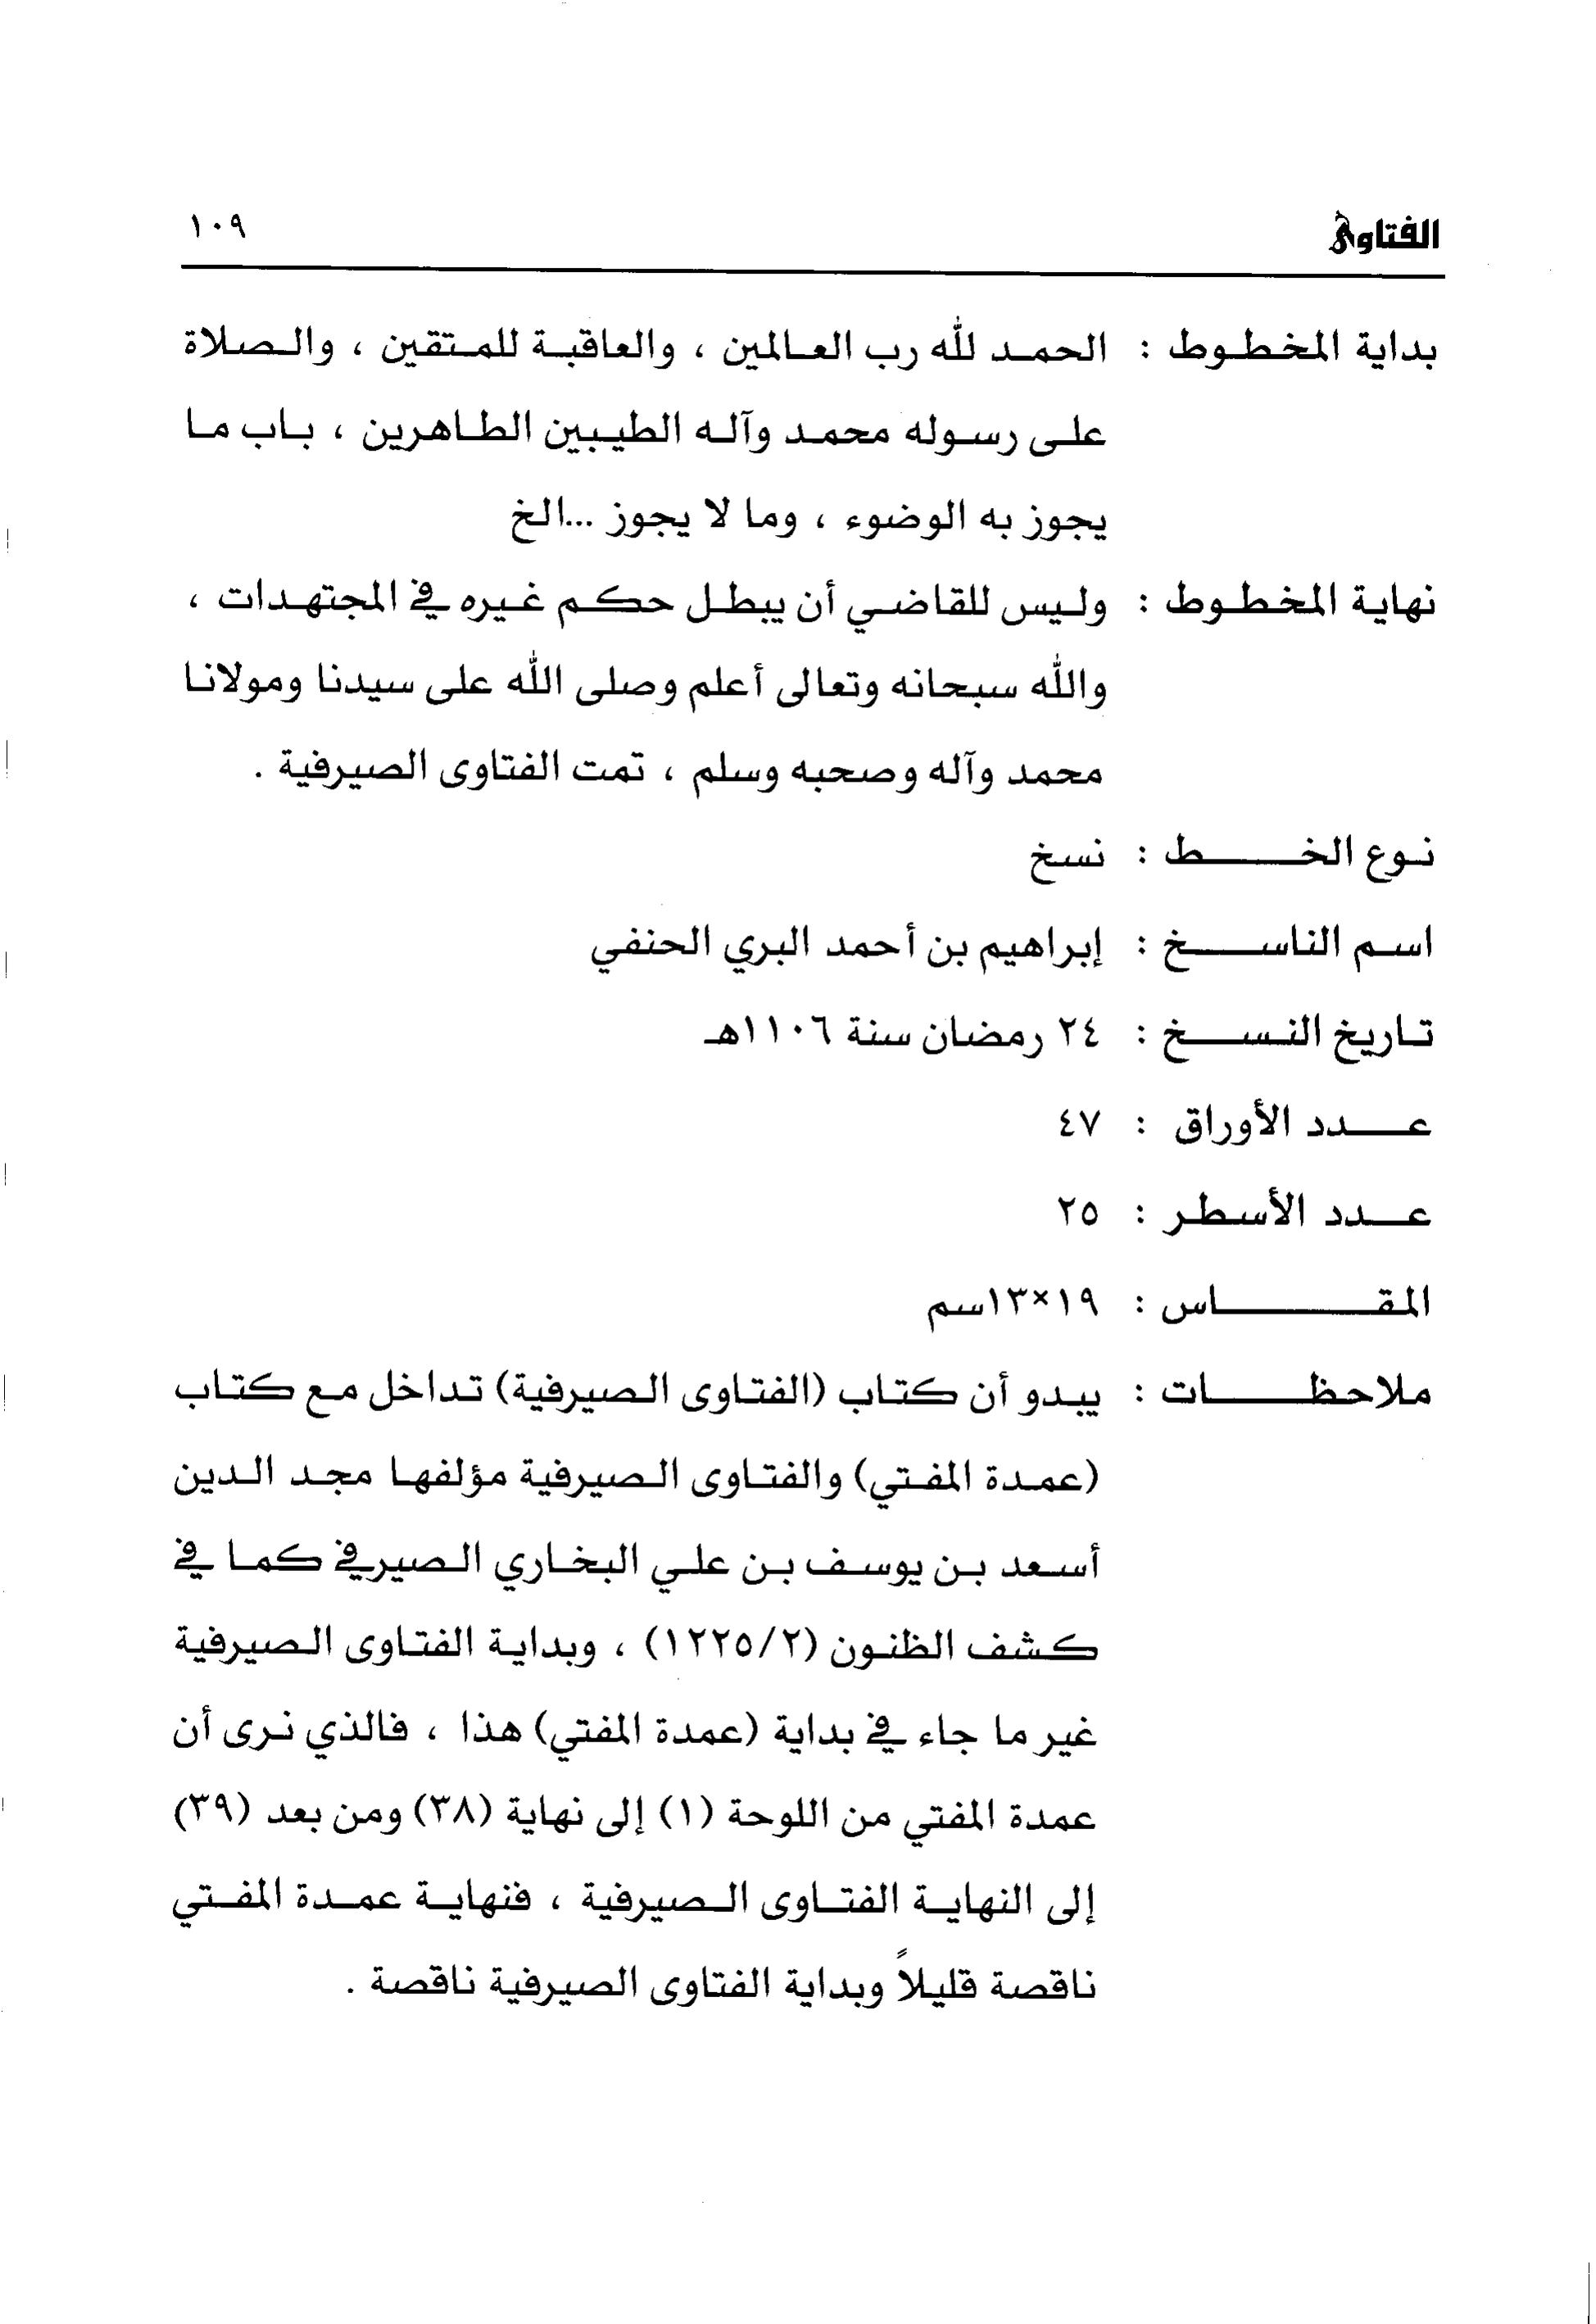 الفتاوى ١٠٩
بداية المخطوط : الحمد لله رب العالمين ، والعاقبة للمتقين ، والصلاة
على رسوله محمد وآله الطيبين الطاهرين ، باب ما
يجوز به الوضوء ، وما لا يجوز ...الخ
نهاية المخطوط : وليس للقاضي أن يبطل حكم غيره في المجتهدات ،
والله سبحانه وتعالى أعلم وصلى الله على سيدنا ومولانا
محمد وآله وصحبه وسلم ، تمت الفتاوى الصيرفية .
نوع الخط : نسخ
اسم الناسخ : إبراهيم بن أحمد البري الحنفي
تاريخ النسخ : ٢٤ رمضان سنة ١١٠٦هـ
عدد الأوراق : ٤٧
عدد الأسطر : ٢٥
المقاس : ١٩×١٣سم
ملاحظات : يبدو أن كتاب (الفتاوى الصيرفية) تداخل مع كتاب
(عمدة المفتي) والفتاوى الصيرفية مؤلفها مجد الدين
أسعد بن يوسف بن علي البخاري الصيرفي كما في
كشف الظنون (١٢٢٥/٢) ، وبداية الفتاوى الصيرفية
غير ما جاء في بداية (عمدة المفتي) هذا ، فالذي نرى أن
عمدة المفتي من اللوحة (١) إلى نهاية (٣٨) ومن بعد (٣٩)
إلى النهاية الفتاوى الصيرفية ، فنهاية عمدة المفتي
ناقصة قليلاً وبداية الفتاوى الصيرفية ناقصة .